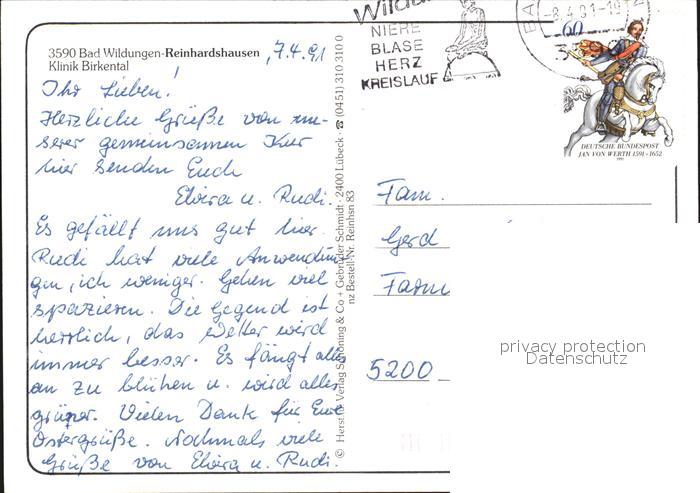 3590 Bad Wildungen-Reinhardshausen
Klinik Birkental
,7.4.91
Ihr Lieben!
Herzliche Grüße von un-
serer gemeinsamen Kur
hier senden Euch
Elvira u. Rudi.
Es gefällt uns gut hier.
Rudi hat viele Anwendun
gen, ich weniger. Gehen viel
spazieren. Die Gegend ist
herrlich, das Wetter wird
immer besser. Es fängt alles
an zu blühen u. wird alles
grüner. Vielen Dank für Eure
Ostergrüße. Nochmals viele
Grüße von Elvira u. Rudi.
© Herst. u. Verlag Schöning & Co + Gebrüder Schmidt · 2400 Lübeck · ☎ (0451) 310 310 0
nz Bestell-Nr. Reinhsn 83
NIERE
BLASE
HERZ
KREISLAUF
-8.4.91-19
60
DEUTSCHE BUNDESPOST
JAN VON WERTH 1591-1652
1991
Fam.
Gerd
5200
privacy protection
Datenschutz